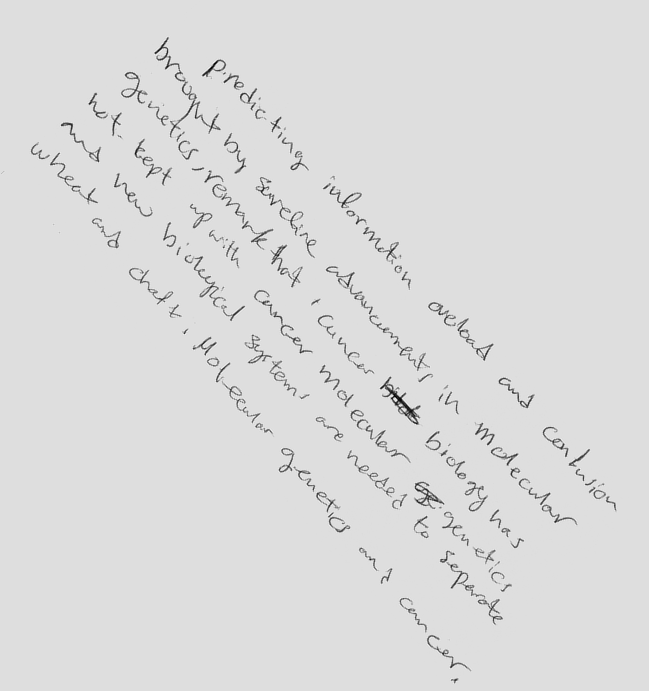 Predicting information overload and confusion
brought by advancements in molecular
genetics, remark that, cancer biology has
not kept up with cancer molecular genetics
and new biological systems are needed to separate
wheat and chaff, Molecular genetics and cancer.